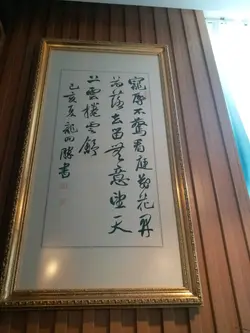 寵辱不驚看庭前花開
花落去留無意望天
上雲捲雲舒
己亥夏龍書